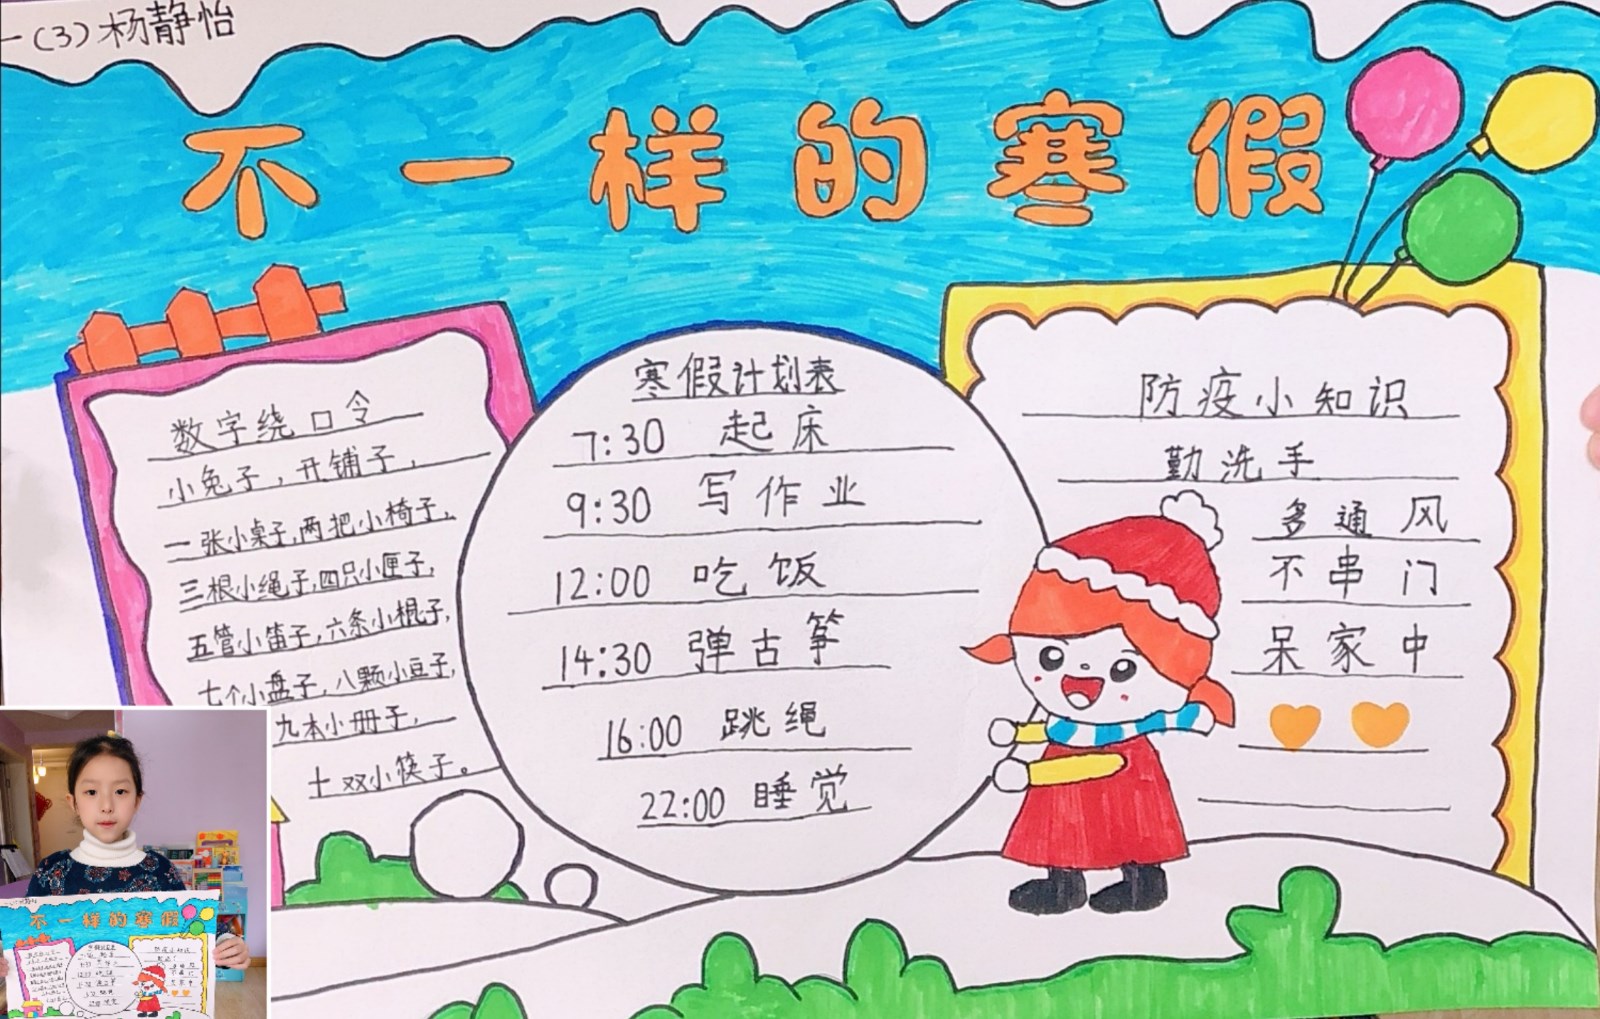 一(3)杨静怡
不一样的寒假
数字绕口令
小兔子，开铺子，
一张小桌子，两把小椅子，
三根小绳子，四只小匣子，
五管小笛子，六条小棍子，
七个小盘子，八颗小豆子，
九本小册子，
十双小筷子。
寒假计划表
7:30 起床
9:30 写作业
12:00 吃饭
14:30 弹古筝
16:00 跳绳
22:00 睡觉
防疫小知识
勤洗手
多通风
不串门
呆家中